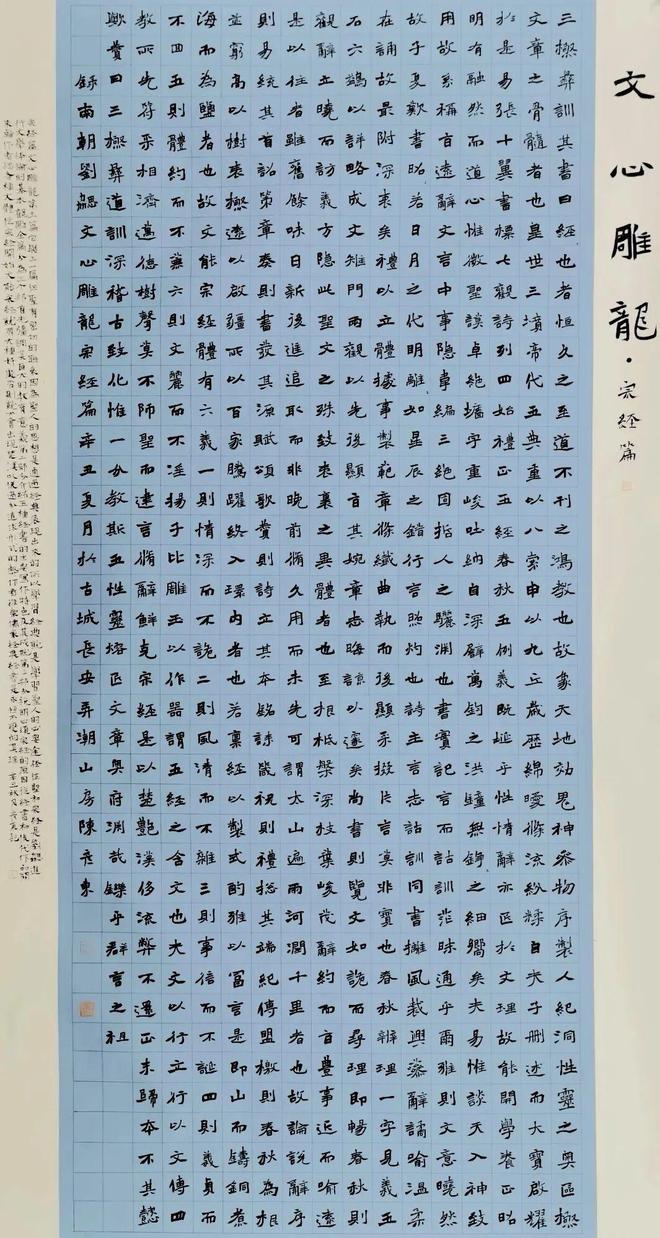 文心雕龍·宗經篇
三極彝訓其書曰經也者恒久之至道不刊之鴻教也故象天地効鬼神參物序製人紀洞性靈之奧區極
文章之骨髓者也皇世三墳帝代五典重以八索申以九丘歲歷綿曖條流紛糅自夫子刪述而大寶啟耀
於是易張十翼書標七觀詩列四始禮正五經春秋五例義既埏乎性情辭亦匠於文理故能開學養正昭
明有融然而道心惟微聖謨卓絕墻宇重峻吐納自深譬萬鈞之洪鐘無錚之細嚮矣夫易惟談天入神致
用故系稱旨遠辭文言中事隱韋編三絕固哲人之驪淵也書實記言而詁訓茫昧通乎爾雅則文意曉然
故子夏歎書昭若日月之代明離如星辰之錯行言照灼也詩主言志詁訓同書摛風裁興藻辭譎喻溫柔
在誦故最附深衷矣禮以立體據事製範章條纖曲執而後顯采掇片言莫非寶也春秋辨理一字見義五
石六鷁以詳略成文雉門兩觀以先後顯旨其婉章志晦諒以邃矣尚書則覽文如詭而尋理即暢春秋則
觀辭立曉而訪義方隱此聖文之殊致表裏之異體者也至根柢槃深枝葉峻茂辭約而旨豐事近而喻遠
是以往者雖舊餘味日新後進追取而非晚前脩久用而未先可謂太山遍雨河潤千里者也故論說辭序
則易統其首詔策章奏則書發其源賦頌歌贊則詩立其本銘誄箴祝則禮總其端紀傳盟檄則春秋為根
並窮高以樹表極遠以啟疆所以百家騰躍終入環內者也若稟經以製式酌雅以富言是即山而鑄銅煮
海而為鹽者也故文能宗經體有六義一則情深而不詭二則風清而不雜三則事信而不誕四則義貞而
不回五則體約而不蕪六則文麗而不淫揚子比雕玉以作器謂五經之含文也夫文以行立行以文傳四
教所先符采相濟邁德樹聲莫不師聖而建言脩辭鮮克宗經是以楚艷漢侈流弊不還正末歸本不其懿
歟贊曰三極彝道訓深稽古致化惟一分教斯五性靈熔匠文章奧府淵哉鑠乎群言之祖
錄南朝劉勰文心雕龍宗經篇辛丑夏月於古城長安弄潮山房陳彥東